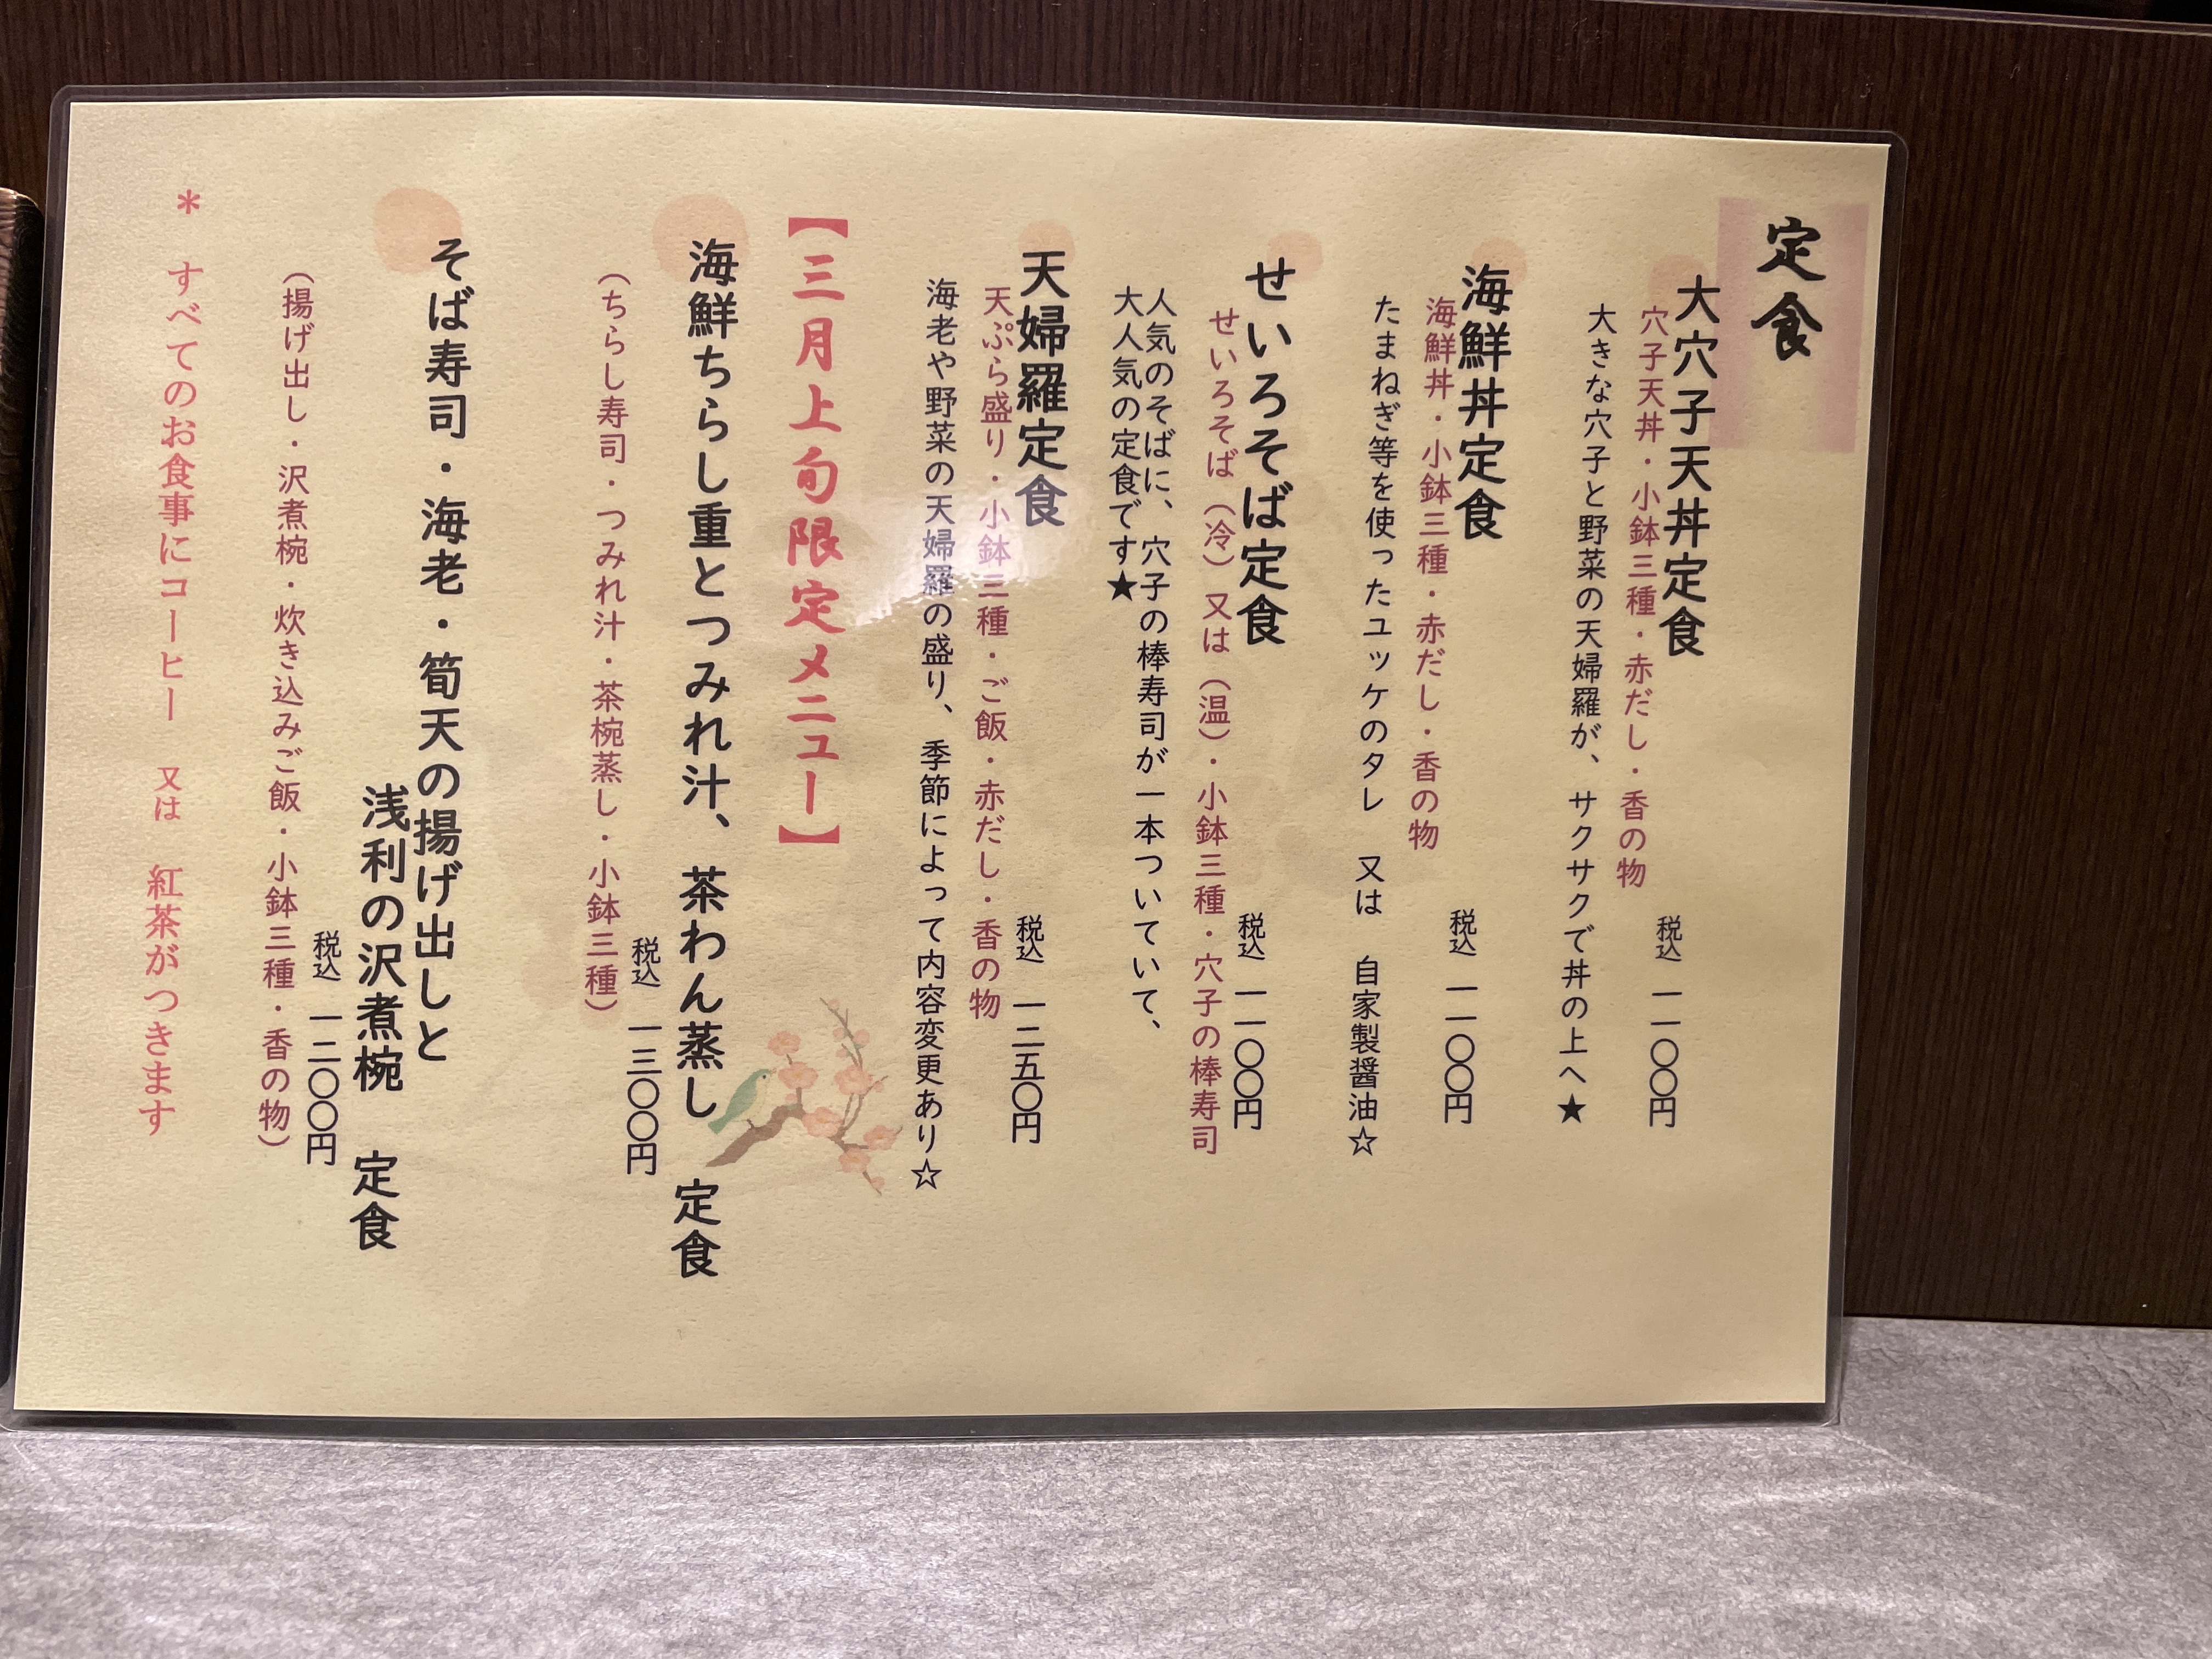 定食
大穴子天丼定食
穴子天丼・小鉢三種・赤だし・香の物
税込 一一〇〇円
大きな穴子と野菜の天婦羅が、サクサクで丼の上へ★
海鮮丼定食
海鮮丼・小鉢三種・赤だし・香の物
税込 一一〇〇円
たまねぎ等を使ったユッケのタレ 又は 自家製醤油☆
せいろそば定食
せいろそば（冷）又は（温）・小鉢三種・穴子の棒寿司
税込 一一〇〇円
人気のそばに、穴子の棒寿司が一本ついていて、
大人気の定食です★
天婦羅定食
天ぷら盛り・小鉢三種・ご飯・赤だし・香の物
税込 一二五〇円
海老や野菜の天婦羅の盛り、季節によって内容変更あり☆
【三月上旬限定メニュー】
海鮮ちらし重とつみれ汁、茶わん蒸し 定食
税込 一三〇〇円
（ちらし寿司・つみれ汁・茶椀蒸し・小鉢三種）
そば寿司・海老・筍天の揚げ出しと
浅利の沢煮椀 定食
税込 一二〇〇円
（揚げ出し・沢煮椀・炊き込みご飯・小鉢三種・香の物）
＊ すべてのお食事にコーヒー 又は 紅茶がつきます